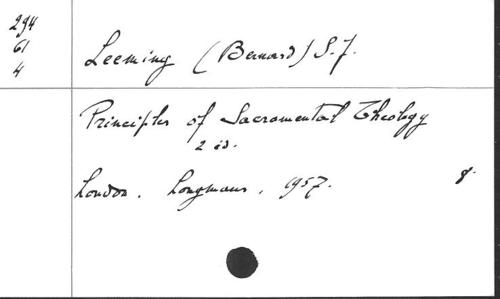 294
61
4
Leeming (Bernard) S.J.
Principles of Sacramental Theology
2 ed.
London. Longmans. 1957. 8.